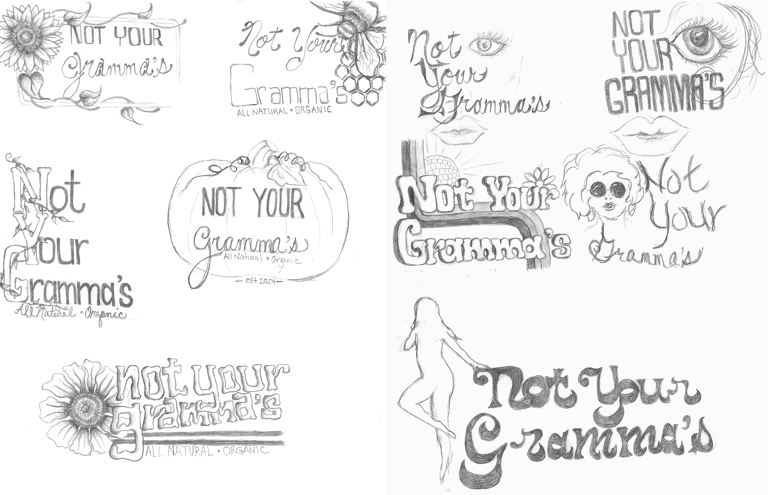 NOT YOUR
Gramma's
Not Your
Gramma's
ALL NATURAL • ORGANIC
Not
Your
Gramma's
All Natural • Organic
NOT YOUR
Gramma's
All Natural • Organic
est. 2024
not your
gramma's
ALL NATURAL • ORGANIC
Not
Your
Gramma's
NOT
YOUR
GRAMMA'S
Not Your
Gramma's
Not
Your
Gramma's
Not Your
Gramma's